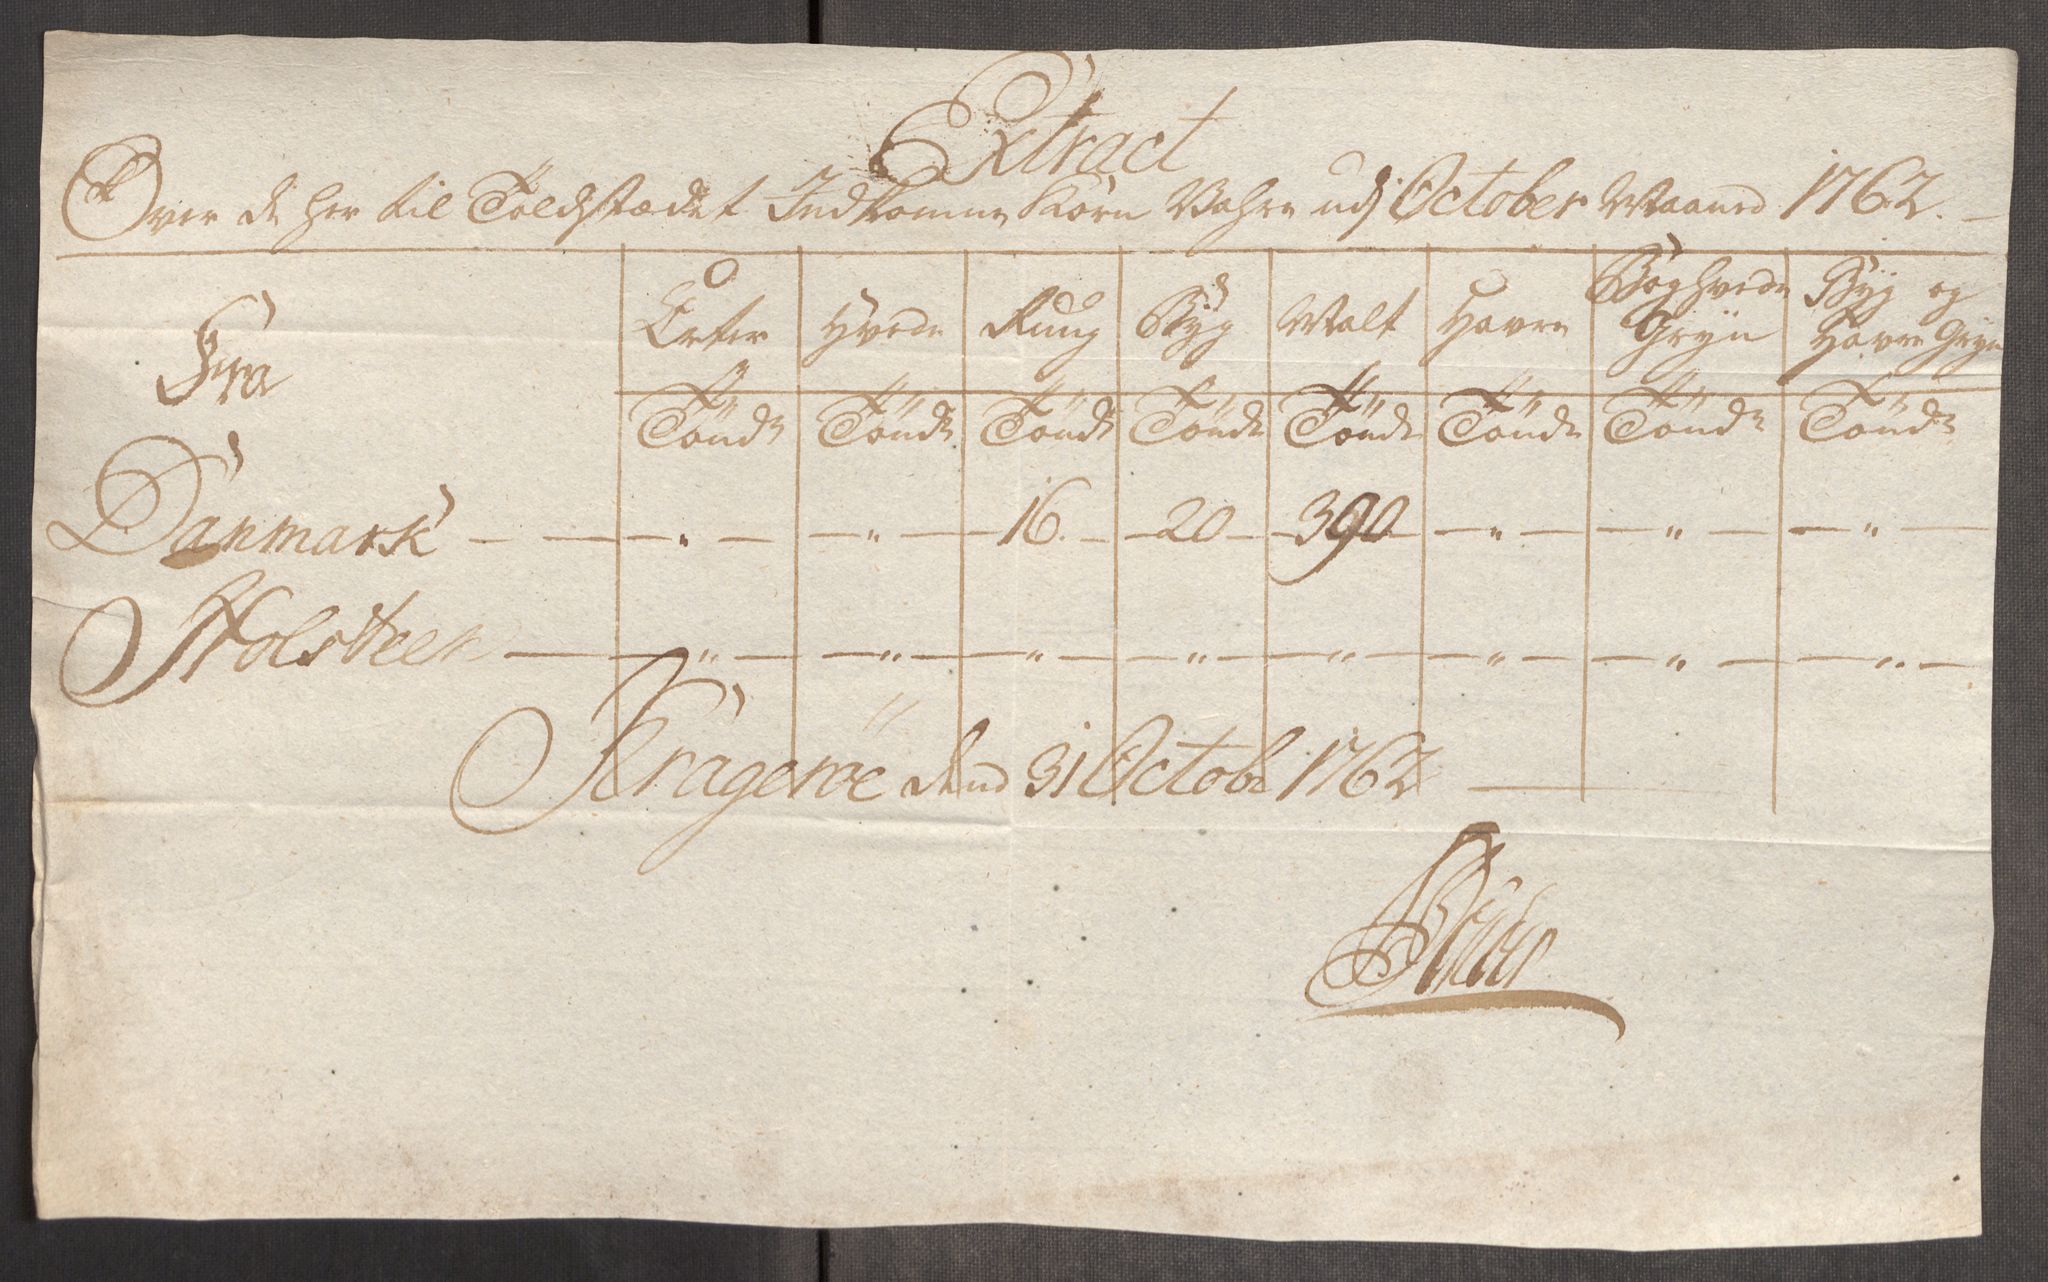 Extract
Over de her til Toldstædet Indkomne Korn Vahre udj October Maaned 1762.
Fra Erter Hvede Rug Byg Malt Havre Boghvede Gryn Byg og Havre Gryn
Tönde Tönde Tönde Tönde Tönde Tönde Tönde Tönde
Danmark — — „ — — „ — 16. — 20 — 390 — „ — — „ — — „ —
Holsteen — — „ — — „ — — „ — — „ — — „ — — „ — — „ — — „ —
Krageröe dend 31 Octobr 1762